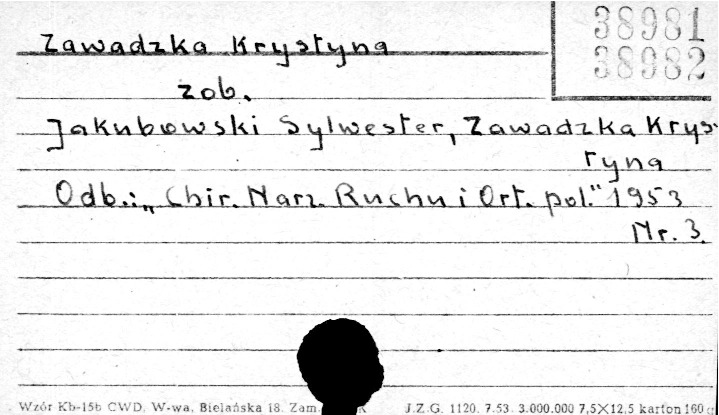 38981
38982
Zawadzka Krystyna
zob.
Jakubowski Sylwester, Zawadzka Krys-
tyna
Odb.: „Chir. Narz. Ruchu i Ort. pol." 1953
Nr. 3.
Wzór Kb-15b CWD, W-wa, Bielańska 18. Zam. J.Z.G. 1120. 7.53. 3.000.000 7,5×12,5 karton 160